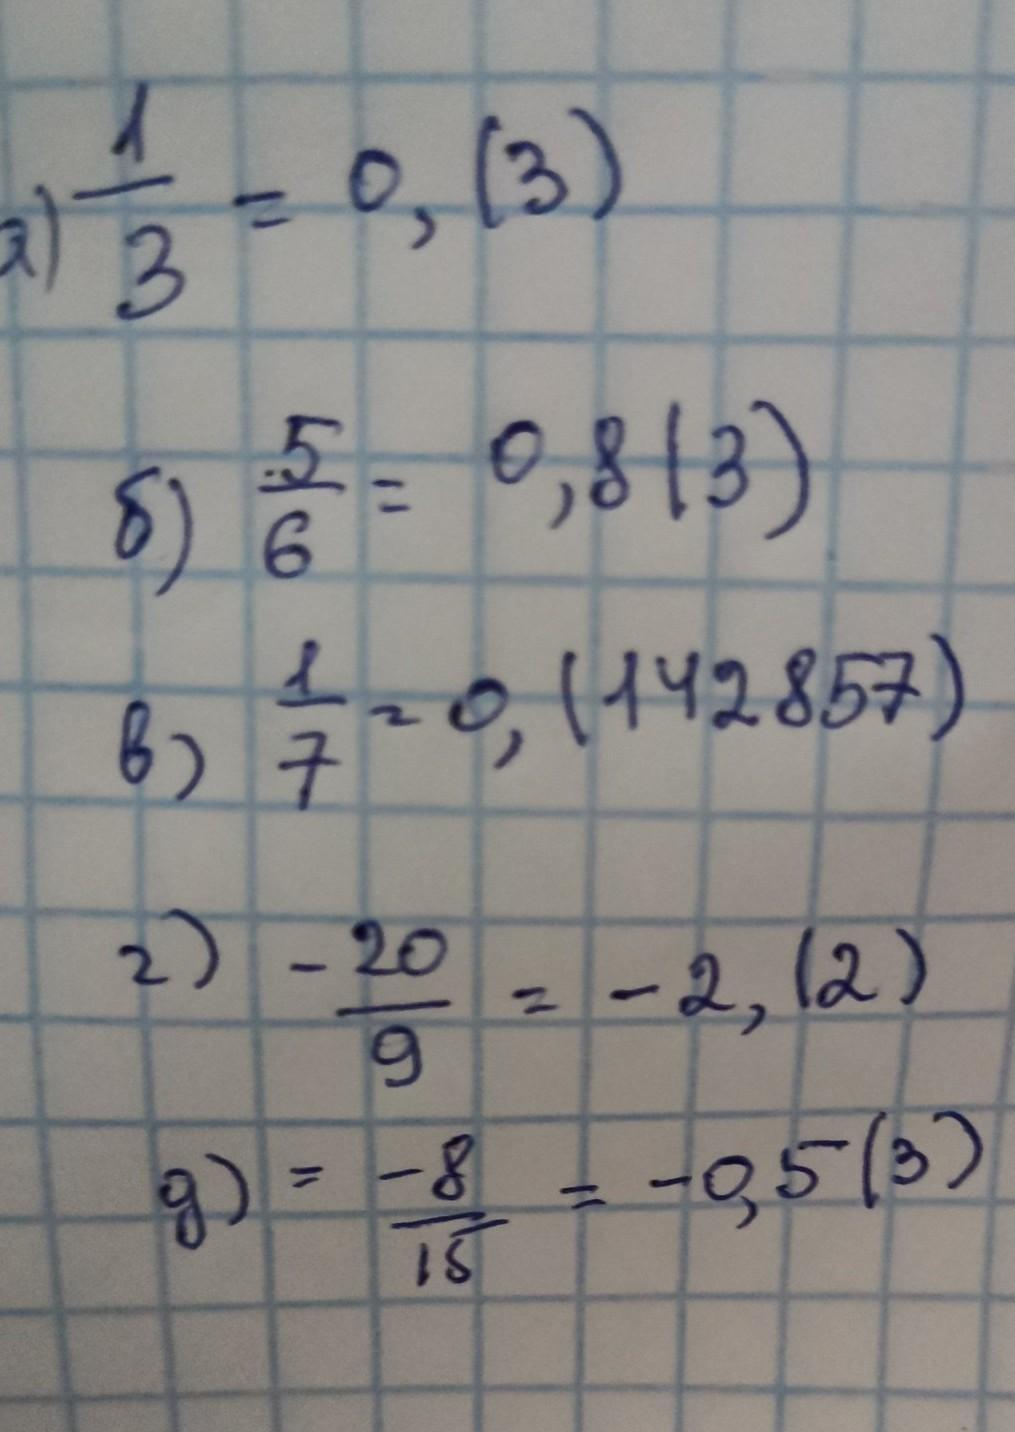 а) 1/3 = 0,(3)
б) 5/6 = 0,8(3)
в) 1/7 = 0,(142857)
г) -20/9 = -2,(2)
д) = -8/15 = -0,5(3)